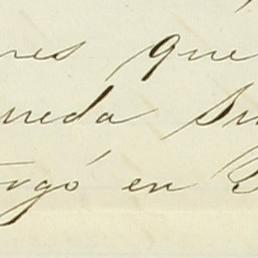 res que
ueda su
orgó en B